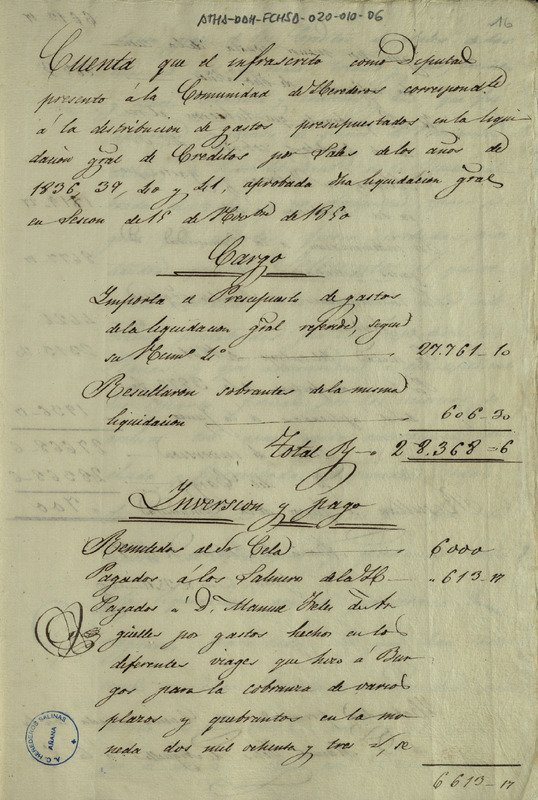 ATHA-DAH-FCHSA-020-010-06
16
Cuenta que el infrascrito como Diputad
presento á la Comunidad de Herederos correspond.te
á la distribucion de gastos presupuestados en la liqui-
dacion gral de Creditos por Sales de los años de
1836, 39, 40 y 41, aprobada dha liquidacion gral
en Sesion de 15 de Nov.bre de 1850
Cargo
Importa el Presupuesto de gastos
de la liquidacion gral referida, segun
su Num.o 4.o 27.761-10
Resultaron sobrantes de la misma
liquidacion 606-30
Total 28.368-6
Inversion y pago
Remitidos al Sr Cela 6000
Pagados á los Salineros de la H 613-17
Pagados á D. Manuel Felix de Ar
guelles por gastos hechos en los
diferentes viages que hizo á Bur-
gos para la cobranza de varios
plazos y quebrantos en la mo-
neda dos mil ochenta y tres
6613-17
A.C. HEREDEROS SALINAS
AÑANA